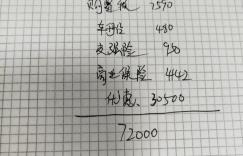 购置税 7590
480
交强险 950
商业保险 4142
优惠 30500
72000